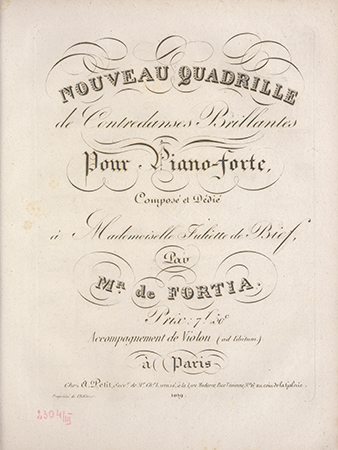 NOUVEAU QUADRILLE
de Contredanses Brillantes
Pour Piano-forte,
Composé et Dédié
à Mademoiselle Juliette de Bief,
Par
Mr. de FORTIA.
Prix: 7f. 50c
Accompagnement de Violon (ad libitum)
à Paris
Chez A. Petit, Succr. de
à la Lyre Moderne, Rue Vivienne, No. 6, au coin de la Galerie.
Propriété de l'Editeur.
1029.
2304/15